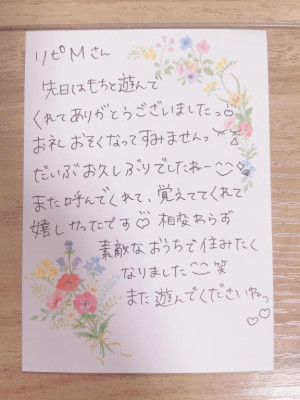 リピMさん
先日はもちと遊んで
くれてありがとうございましたっ♡
お礼おそくなってすみませんっ
だいぶお久しぶりでしたねー
また呼んでくれて、覚えててくれて
嬉しかったです♡ 相変わらず
素敵なおうちで住みたく
なりました 笑
また遊んでくださいねっ
♡♡